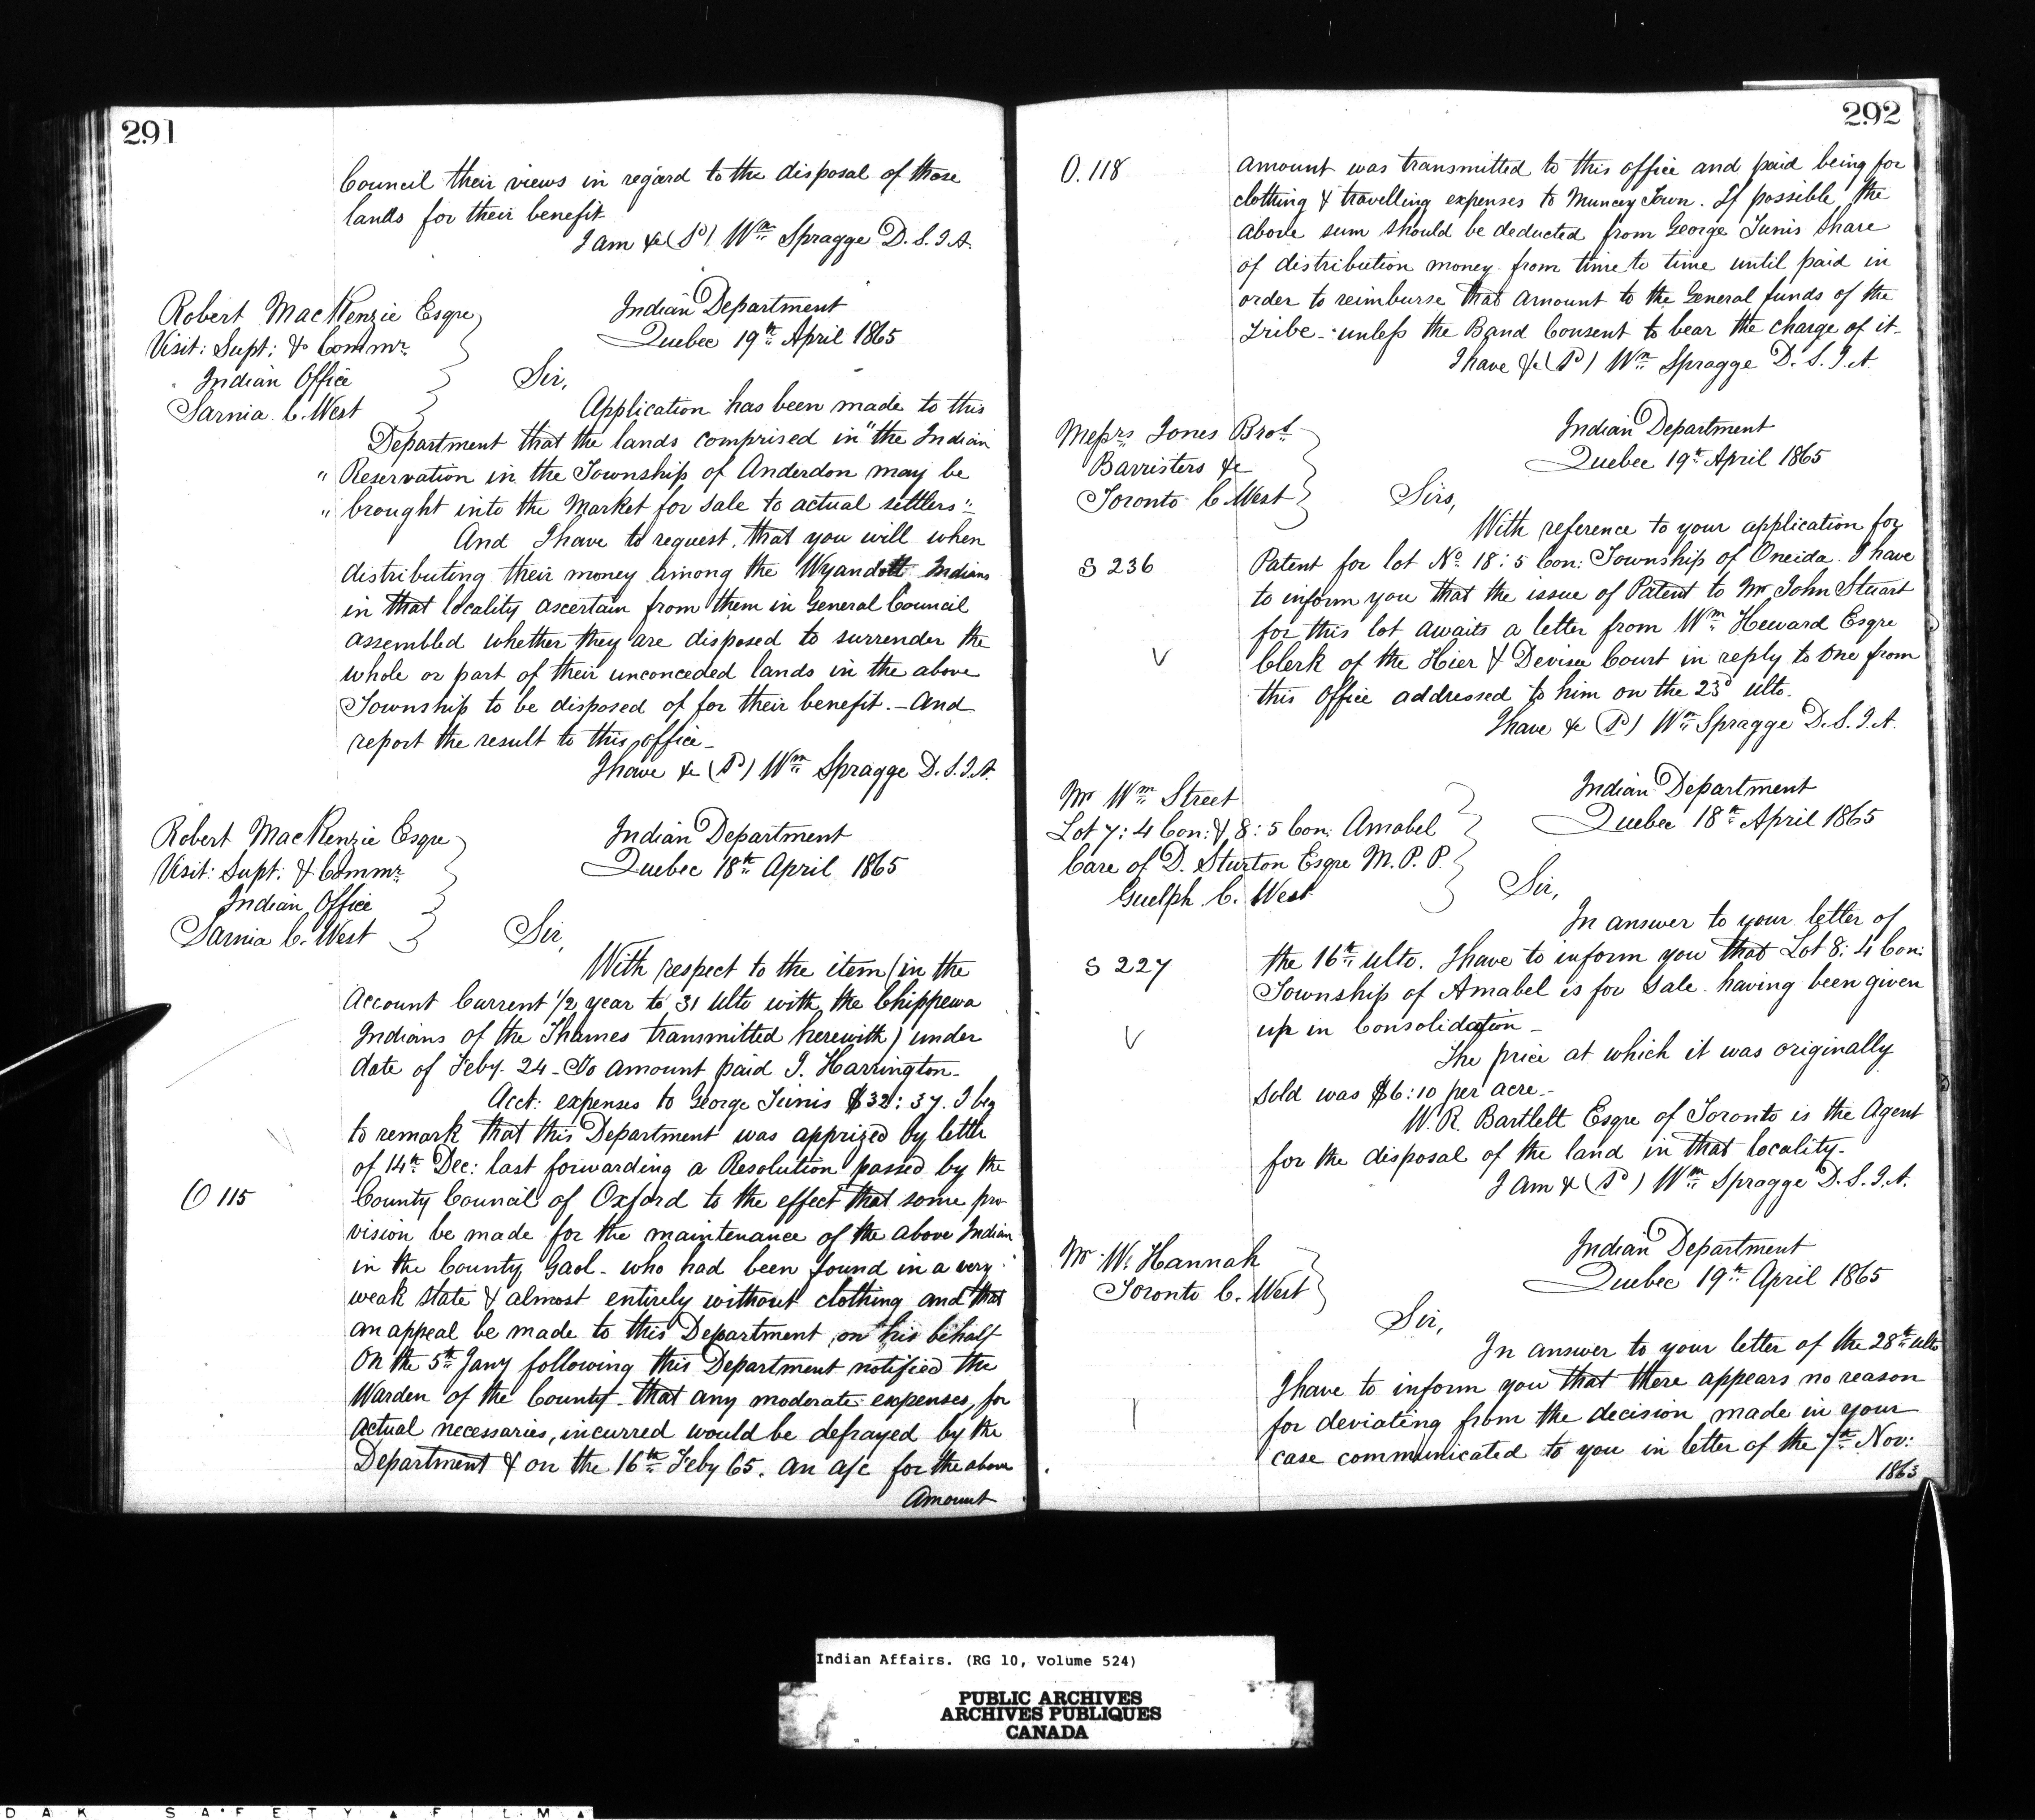 291
Council their views in regard to the disposal of those
lands for their benefit
I am &c (Sd) Wm Spragge D.S.I.A.
Robert MacKenzie Esqre
Visit: Supt: & Commr
Indian Office
Sarnia C. West
Indian Department
Quebec 19th April 1865
Sir,
Application has been made to this
Department that the lands comprised in "the Indian
" Reservation in the Township of Anderdon may be
" brought into the Market for sale to actual settlers"-
And I have to request, that you will when
distributing their money among the Wyandott Indians
in that locality ascertain from them in General Council
assembled whether they are disposed to surrender the
whole or part of their unconceded lands in the above
Township to be disposed of for their benefit. - And
report the result to this office -
I have &c (Sd) Wm Spragge D.S.I.A.
Robert MacKenzie Esqre
Visit: Supt: & Commr
Indian Office
Sarnia C. West
Indian Department
Quebec 18th April 1865
Sir,
With respect to the item (in the
Account Current 1/2 year to 31 Ulto with the Chippewa
Indians of the Thames transmitted herewith) under
date of Feby. 24 - To amount paid I. Harrington -
Acct: expenses to George Tunis $32:37. I beg
to remark that this Department was apprized by letter
of 14th Dec: last forwarding a Resolution passed by the
O 115
County Council of Oxford to the effect that some pro-
vision be made for the maintenance of the above Indian
in the County Gaol - who had been found in a very
weak state & almost entirely without clothing and that
an appeal be made to this Department on his behalf
On the 5th Jany following this Department notified the
Warden of the County - that any moderate expenses, for
actual necessaries, incurred would be defrayed by the
Department & on the 16th Feby 65. an a/c for the above
Amount
292
O. 118
amount was transmitted to this office and paid being for
clothing & travelling expenses to Muncey Town. If possible the
above sum should be deducted from George Tunis share
of distribution money from time to time until paid in
order to reimburse that amount to the General funds of the
Tribe - unless the Band Consent to bear the charge of it -
I have &c (Sd) Wm Spragge D.S.I.A.
Messrs Jones Bros
Barristers &c
Toronto C. West
Indian Department
Quebec 19th April 1865
Sirs,
With reference to your application for
S 236
Patent for lot No 18: 5 Con: Township of Oneida. I have
to inform you that the issue of Patent to Mr John Stuart
for this lot awaits a letter from Wm Heward Esqre
Clerk of the Hier & Devisee Court in reply to one from
this Office addressed to him on the 23d ulto.
I have &c (Sd) Wm Spragge D.S.I.A.
Mr Wm Street
Lot 7: 4 Con: & 8: 5 Con: Amabel
Care of D. Sturton Esqre M.P.P.
Guelph C. West
Indian Department
Quebec 18th April 1865
Sir,
In answer to your letter of
S 227
the 16th Ulto. I have to inform you that Lot 8: 4 Con:
Township of Amabel is for sale having been given
up in Consolidation -
The price at which it was originally
sold was $6:10 per acre -
W.R. Bartlett Esqre of Toronto is the Agent
for the disposal of the land in that locality -
I am &c (Sd) Wm Spragge D.S.I.A.
Mr W. Hannah
Toronto C. West
Indian Department
Quebec 19th April 1865
Sir,
In answer to your letter of the 28th ulto
I have to inform you that there appears no reason
for deviating from the decision made in your
case communicated to you in letter of the 7th Nov:
1863
Indian Affairs. (RG 10, Volume 524)
PUBLIC ARCHIVES
ARCHIVES PUBLIQUES
CANADA
DAK SAFETY FILM